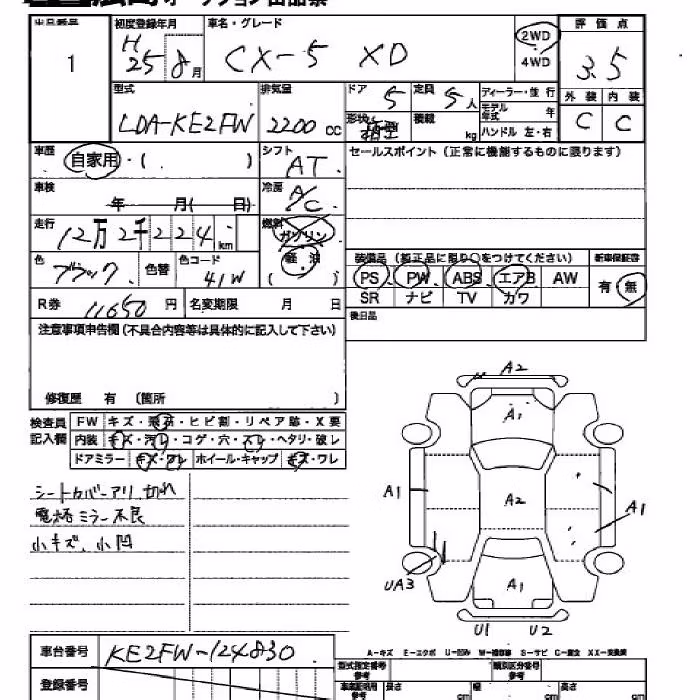 オークション出品票
出品番号 初度登録年月 車名・グレード 評価点
1 H 25 8月 CX-5 XD 2WD 4WD 3.5
型式 排気量 ドア 定員 ディーラー・並行 外装 内装
LDA-KE2FW 2200 CC 5 5人 モデル年式 年 C C
形状 箱型 積載 kg ハンドル 左・右
車歴 自家用・( ) シフト AT セールスポイント(正常に機能するものに限ります)
車検 年 月( 日) 冷房 A/C
走行 12万2千224 km 燃料 ガソリン
色 ブラック 色替 色コード 41W 軽油 ( )
装備品(純正品に限り○をつけてください) 新車保証書
PS PW ABS エアB AW 有・無
SR ナビ TV カワ
R券 11650円 名変期限 月 日 後日品
注意事項申告欄(不具合内容等は具体的に記入して下さい)
修復歴 有 (箇所 )
検査員記入欄 FW キズ・飛石・ヒビ割・リペア跡・X要
内装 キズ・汚レ・コゲ・穴・スレ・ヘタリ・破レ
ドアミラー キズ・ワレ ホイール・キャップ キズ・ワレ
シートカバーアリ.切れ
電格ミラー不良
小キズ、小凹
A2
A1
A1 A2 A1
UA3 A1
U1 U2
車台番号 KE2FW-124830
A-キズ E-エクボ U-凹ミ W-補修跡 S-サビ C-腐食 XX-交換済
登録番号
型式指定番号 参考 類別区分番号 参考
車庫証明用 参考 長さ cm 幅 cm 高 cm